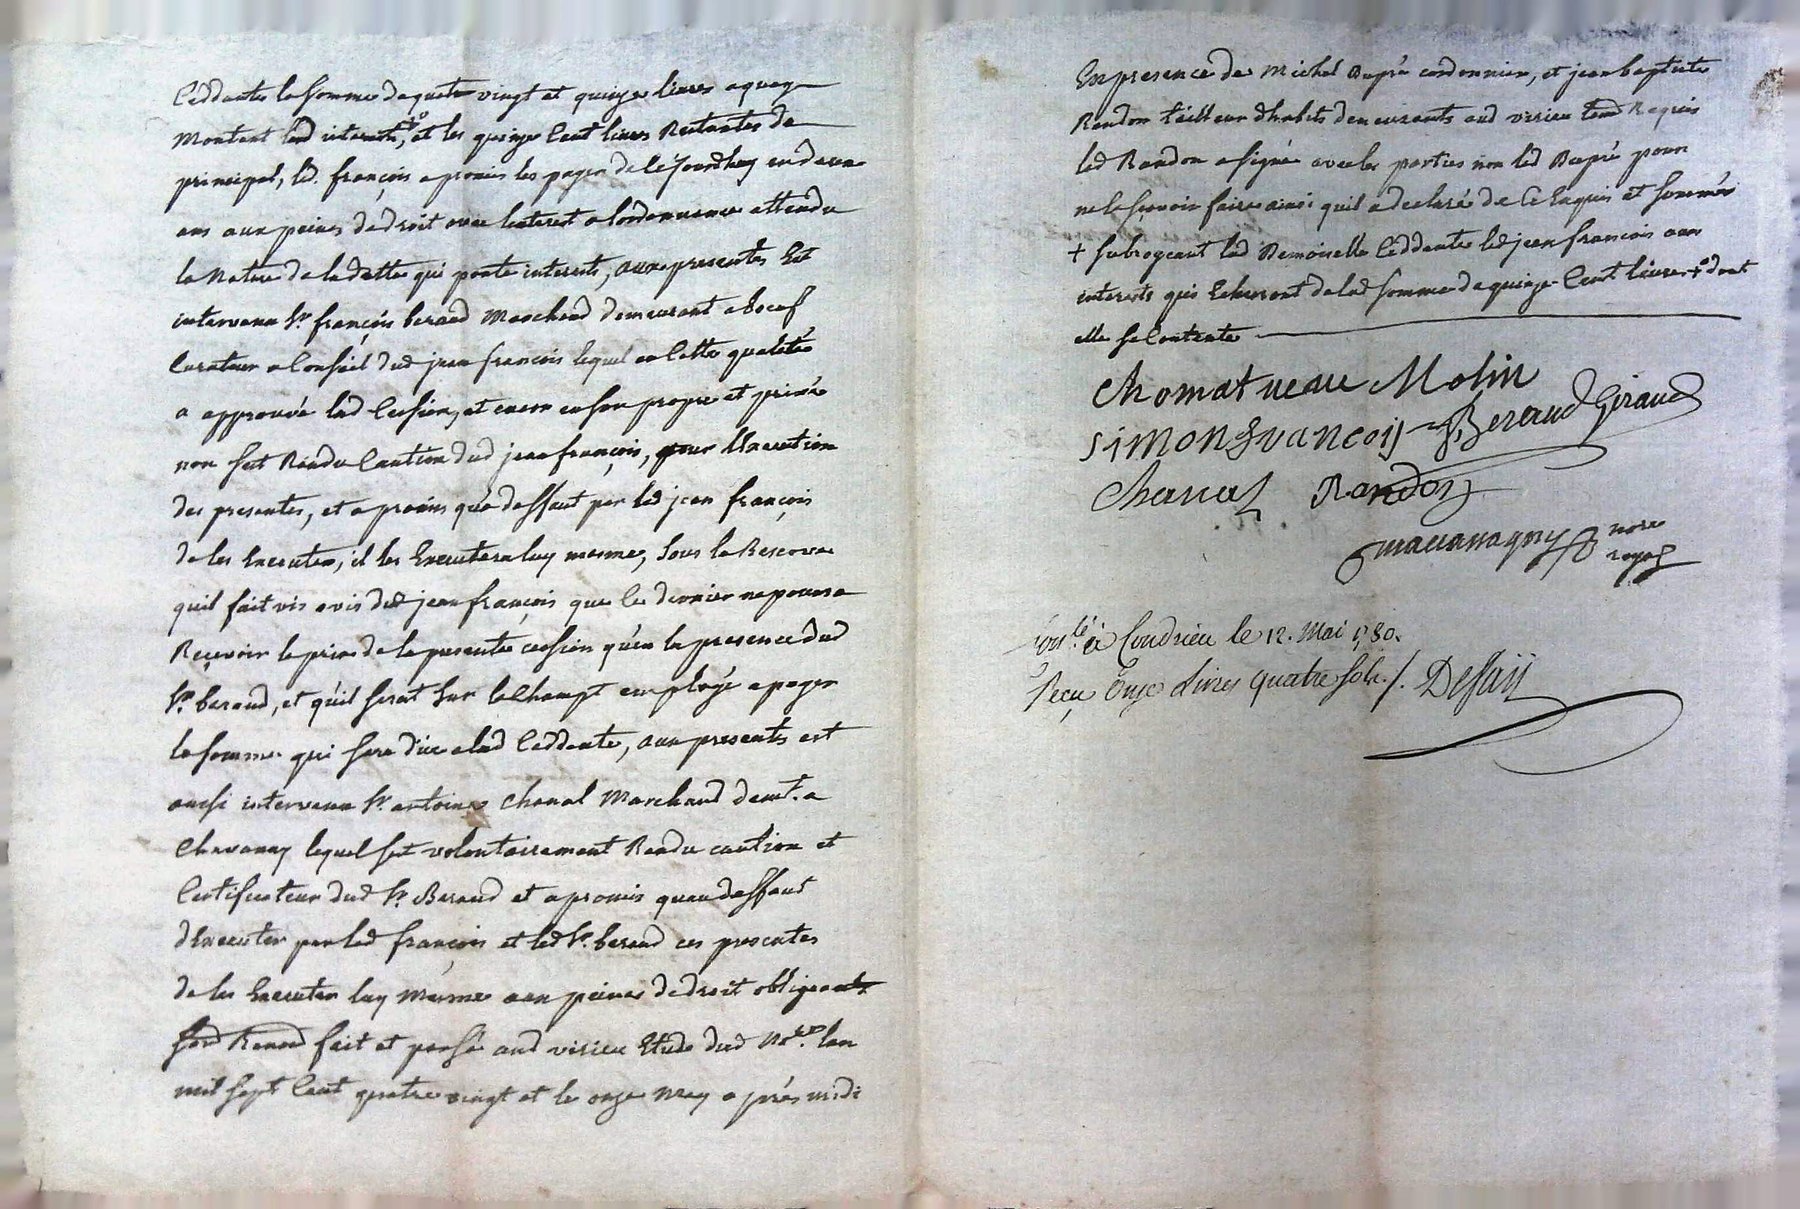 Ceddante la somme de quatre vingt et quinze livres a quoy
Montent lesd interests, et les quinze Cent livres Restantes de
principal, led. françois a promis les payer de ce Jourdhuy en deux
ans aux peines de droit avec linterest a lordonnance attendu
la Nature de la dette qui porte interests, aux presentes Est
intervenu Sr françois beraud Marchand demeurant a
Curateur a Conseil dud jean françois lequel en Cette qualité
a approuvé lad Cession, et encor en son propre et privé
nom sest Rendu Caution dud jean françois, pour lExecution
des presentes, et a promis qua deffaut par led jean françois
de les Executer, il les Executera luy mesme, sous la Reserve
quil fait vis avis dud jean françois que ce dernier ne pourra
Reçevoir le prix de la presente cession qu'en la presence dud
Sr. beraud, et qu'il serat sur le Champt employé a payer
la somme qui sera düe a lad Ceddante, aux presentes est
aussi intervenu Sr. antoine Chanal Marchand demt. a
Chavanay lequel sest volontairement Rendu caution et
Certificateur dud Sr. Beraud et a promis quau deffaut
dExecuter par led françois et led Sr. beraud ces presentes
de les Executer luy mesme aux peines de droit obligeant
fait et passé aud virieu Etude dud Nore. lan
mil sept Cent quatre vingt et le onze may a prés midi
En presence de Michel Dupré cordonnier, et jean baptiste
Randon tailleur dhabits demeurants aud virieu Requis
led Randon a signé avec les parties non led Dupré pour
ne le sçavoir faire ainsi quil a declaré de Ce Enquis et sommés
+ subrogeant lad Demoiselle Ceddante led jean françois aux
interests qui Echerront de lad somme de quinze Cent livres + dont
elle se Contente
Chomat veuve Molin
Simon francois Beraud Giraud
Chanal Randon
mavanagny nore
royal
à Condrieu le 12. Mai 1780.
Reçu Onze Livres quatre sols ./. Desaij